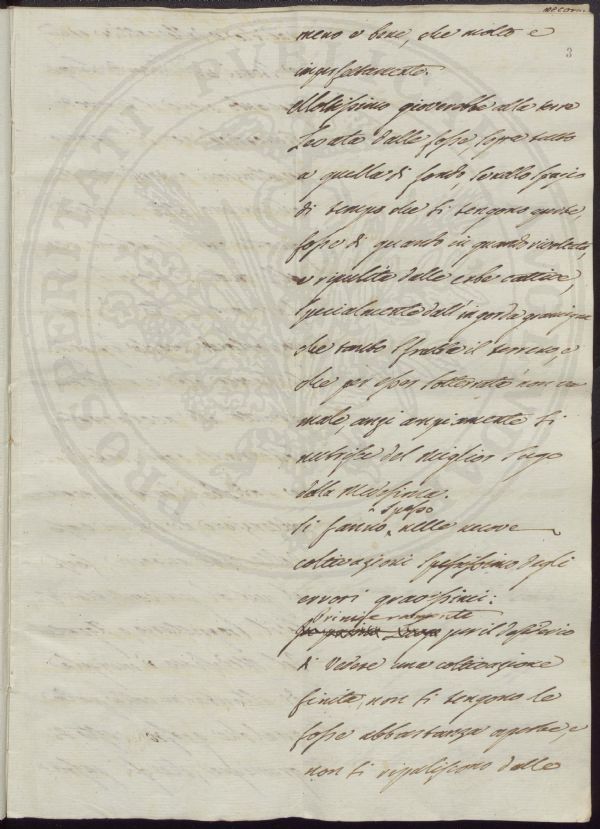 meno e bene, che molto e
imperfettamente.
3
Moltissimo gioverebbe alle terre
levate dalle fosse, sopra tutto
a quella di fondo, se nello spazio
di tempo che si tengono aperte,
fosse di quando in quando rivoltata,
e ripulita dalle erbe cattive,
specialmente dall'ingorda gramigna
che tanto sfrutta il terreno, e
che per esser sotterrata non
male, anzi ampiamente si
nutrisce del miglior sugo
della medesima.
Si fanno spesso nelle nuove
coltivazioni degli
errori gravissimi:
Primieramente per il desiderio
di vedere una coltivazione
finita, non si tengono le
fosse abbastanza aperte, e
non si ripuliscono dalle
PROSPERITATI PUBLICAE